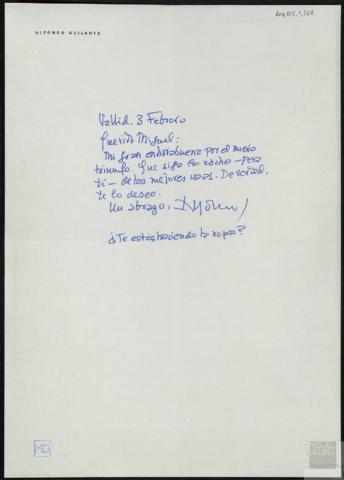 ALFONSO GUILARTE
Vallid. 3 Febrero
Querido Miguel:
Mi gran enhorabuena por el nuevo
triunfo. Que siga la racha – para
ti – de las mejores uvas. De verdad,
te lo deseo.
Un abrazo,
¿Te estás haciendo la ropa?
MD